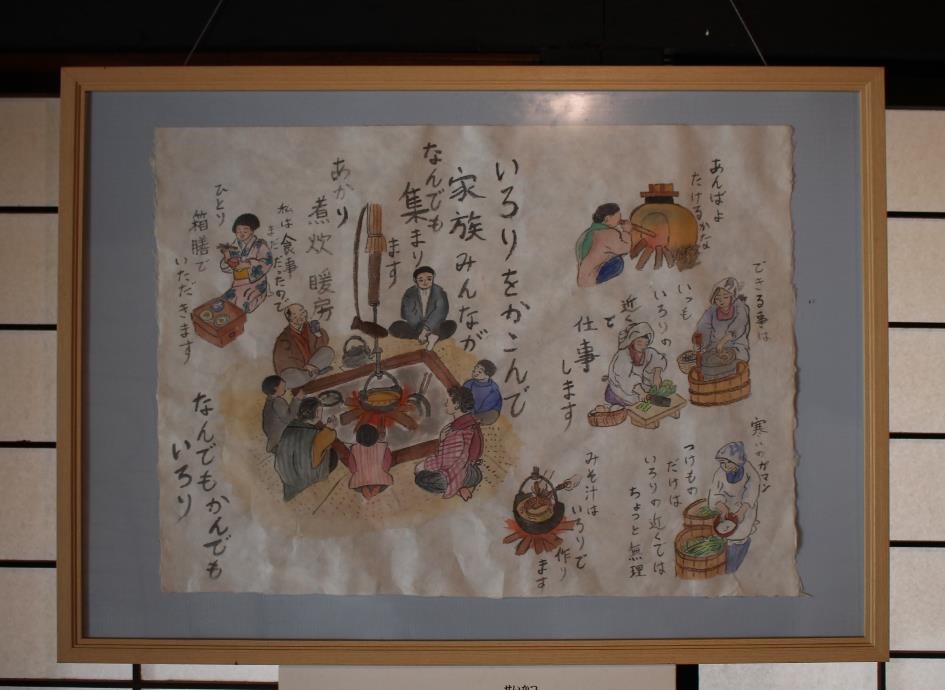 あんばよ
たけるかな
できる事は
いつも
いろりの
近くで
仕事
します
寒いのガマン
つけもの
だけは
いろりの近くでは
ちょっと無理
みそ汁は
いろりで
作り
ます
いろりをかこんで
家族みんなが
なんでも
集まり
ます
あかり
煮炊
暖房
私は食事
まだだったので
ひとり
箱膳で
いただきます
なんでもかんでも
いろり
せいかつ